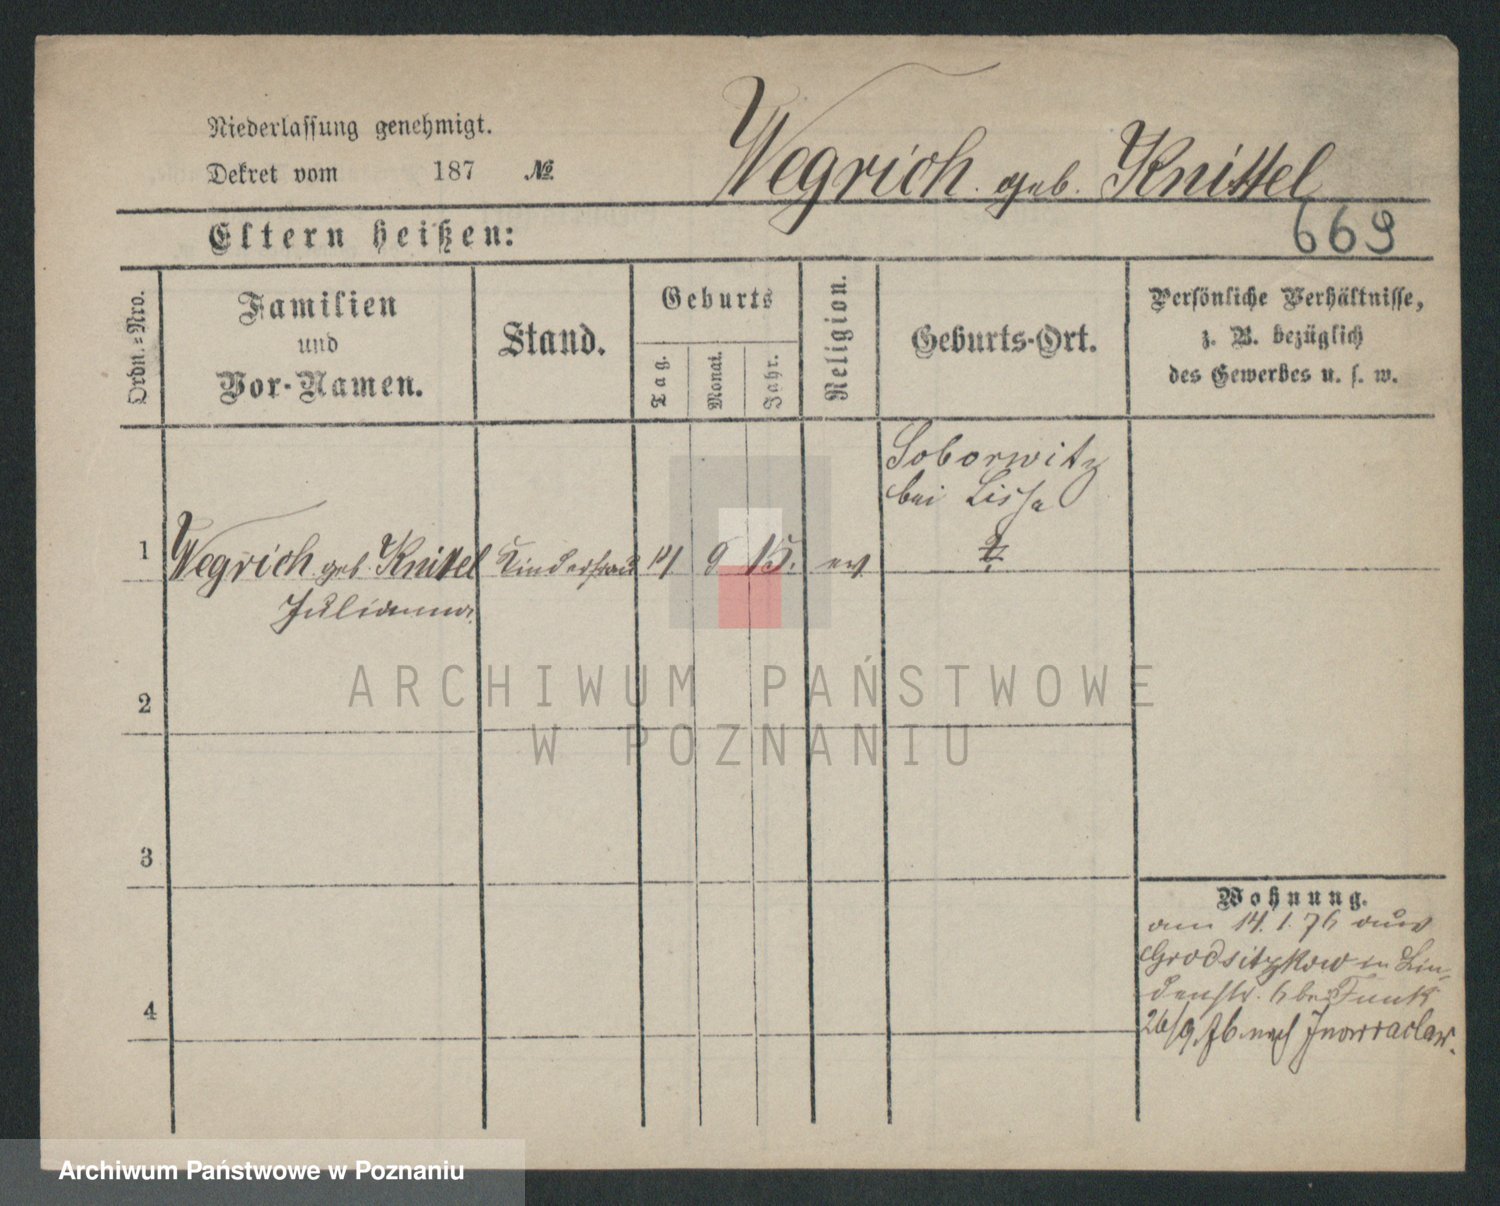 Niederlassung genehmigt.
Dekret vom 187 №
Wegrich geb. Knittel
669
Eltern heißen:
Ordn.=Nro.
Familien
und
Vor-Namen.
Stand.
Geburts
Tag.
Monat.
Jahr.
Religion.
Geburts-Ort.
Persönliche Verhältnisse,
z. B. bezüglich
des Gewerbes u. s. w.
Soborwitz
bei Lissa
1 Wegrich geb. Knittel Kinderfrau 14. 9 15. ev.
Julianna
2
3
4
Wohnung.
am 14.1.76 aus
in Lin-
denstr. 6 bei Funk
26/9.76 nach Inowraclaw.
ARCHIWUM PAŃSTWOWE
W POZNANIU
Archiwum Państwowe w Poznaniu